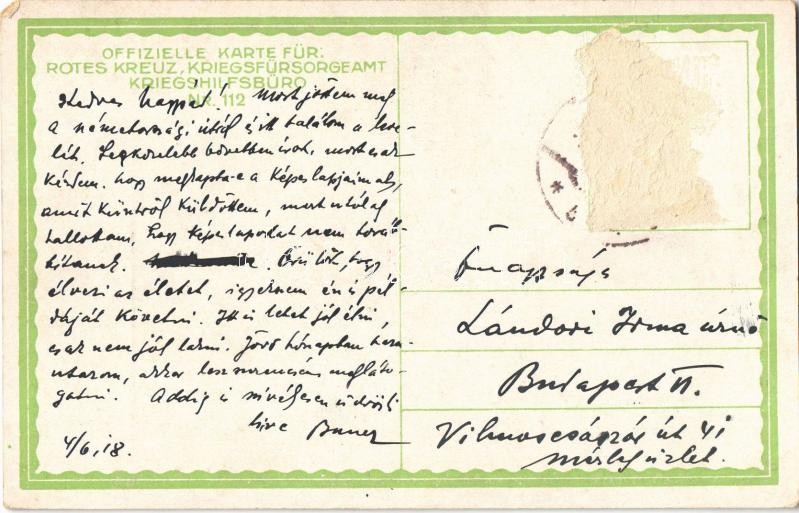 OFFIZIELLE KARTE FÜR:
ROTES KREUZ, KRIEGSFÜRSORGEAMT
KRIEGSHILFSBÜRO
NR. 112
Kedves Nagysád! Most jöttem meg
a németországi útról és itt találom a leve-
lét. Legközelebb bővebben írok, most csak
kérdem, hogy megkapta-e a képes lapjaimat,
amit küldöttem, most utólag
hallottam, hogy képes lapokat nem továb-
bítanak. Örülök, hogy
élvezi az életet, igyekszem én is pél-
dáját követni. Itt is lehet jól élni,
csak nem jól lakni. Jövő hónapban haza
utazom, akkor lesz szerencsém megláto-
gatni. Addig is szívélyesen üdvözli
híve
4/6, 18.
Őnagysága
Lándori Irma úrnő
Budapest VI.
Vilmos császár út 41